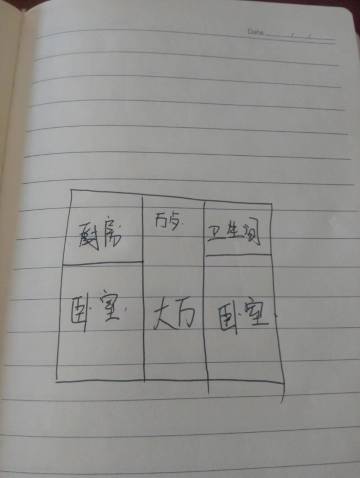 Date
厨房
卫生间
卧室
大厅
卧室